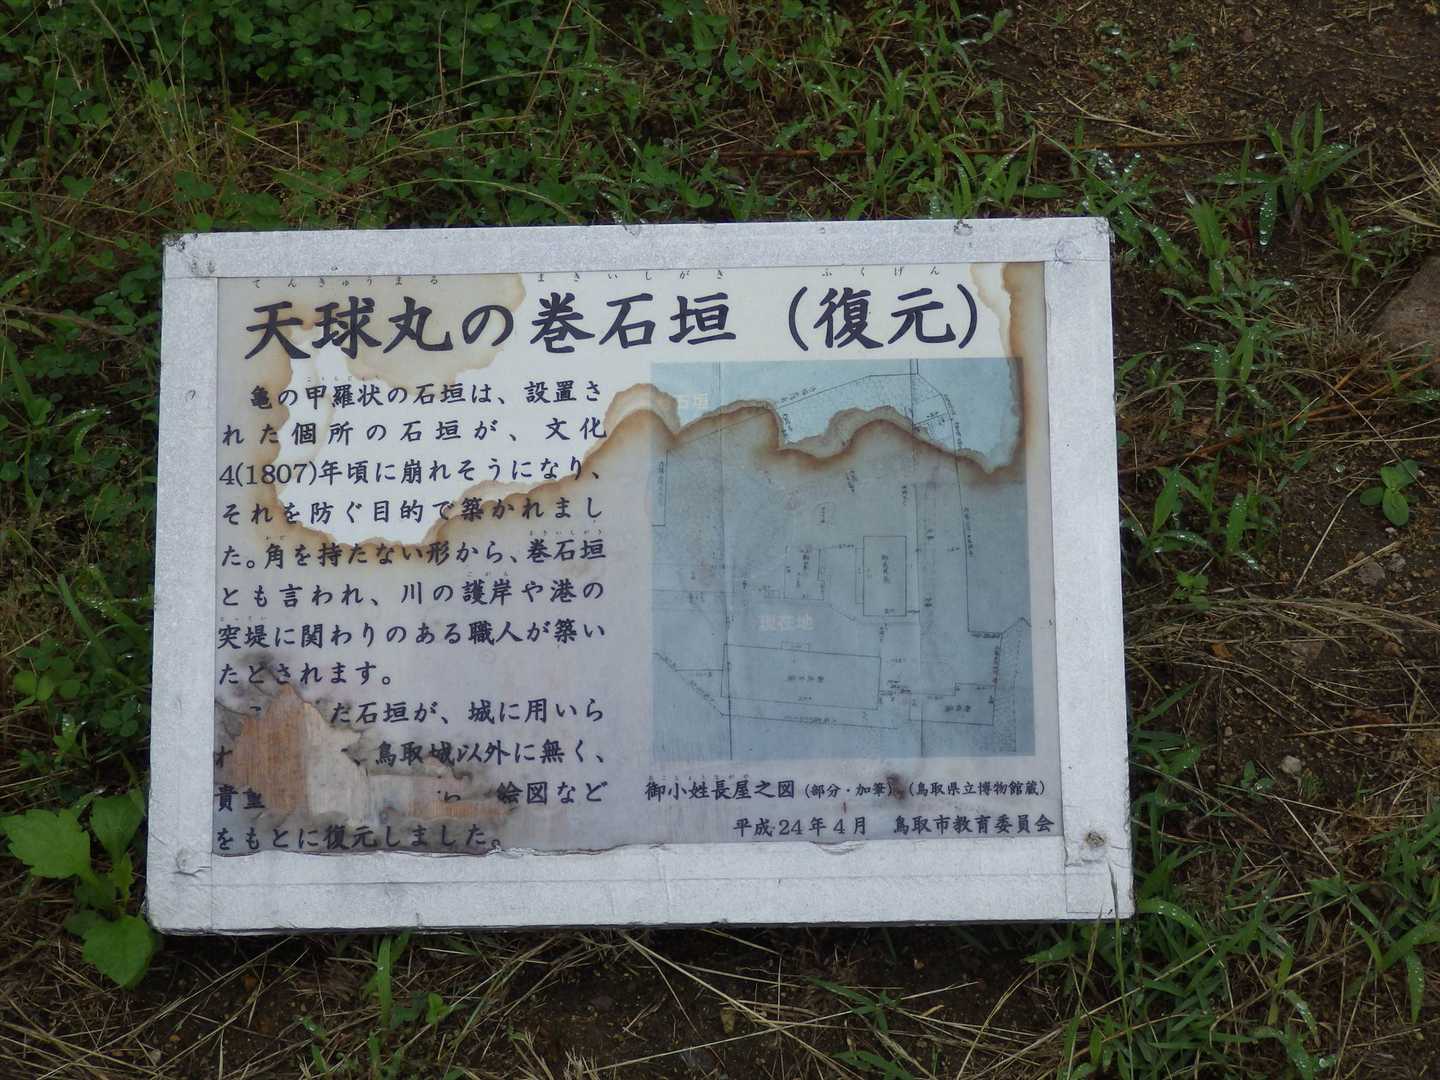 てんきゅうまる まきいしがき ふくげん
天球丸の巻石垣（復元）
亀の甲羅状の石垣は、設置さ
れた個所の石垣が、文化
4(1807)年頃に崩れそうになり、
それを防ぐ目的で築かれまし
た。角を持たない形から、巻石垣
とも言われ、川の護岸や港の
突堤に関わりのある職人が築い
たとされます。
た石垣が、城に用いら
、鳥取城以外に無く、
貴重 ら 絵図など
をもとに復元しました。
石垣
現在地
御小姓長屋之図（部分・加筆）（鳥取県立博物館蔵）
平成24年4月 鳥取市教育委員会